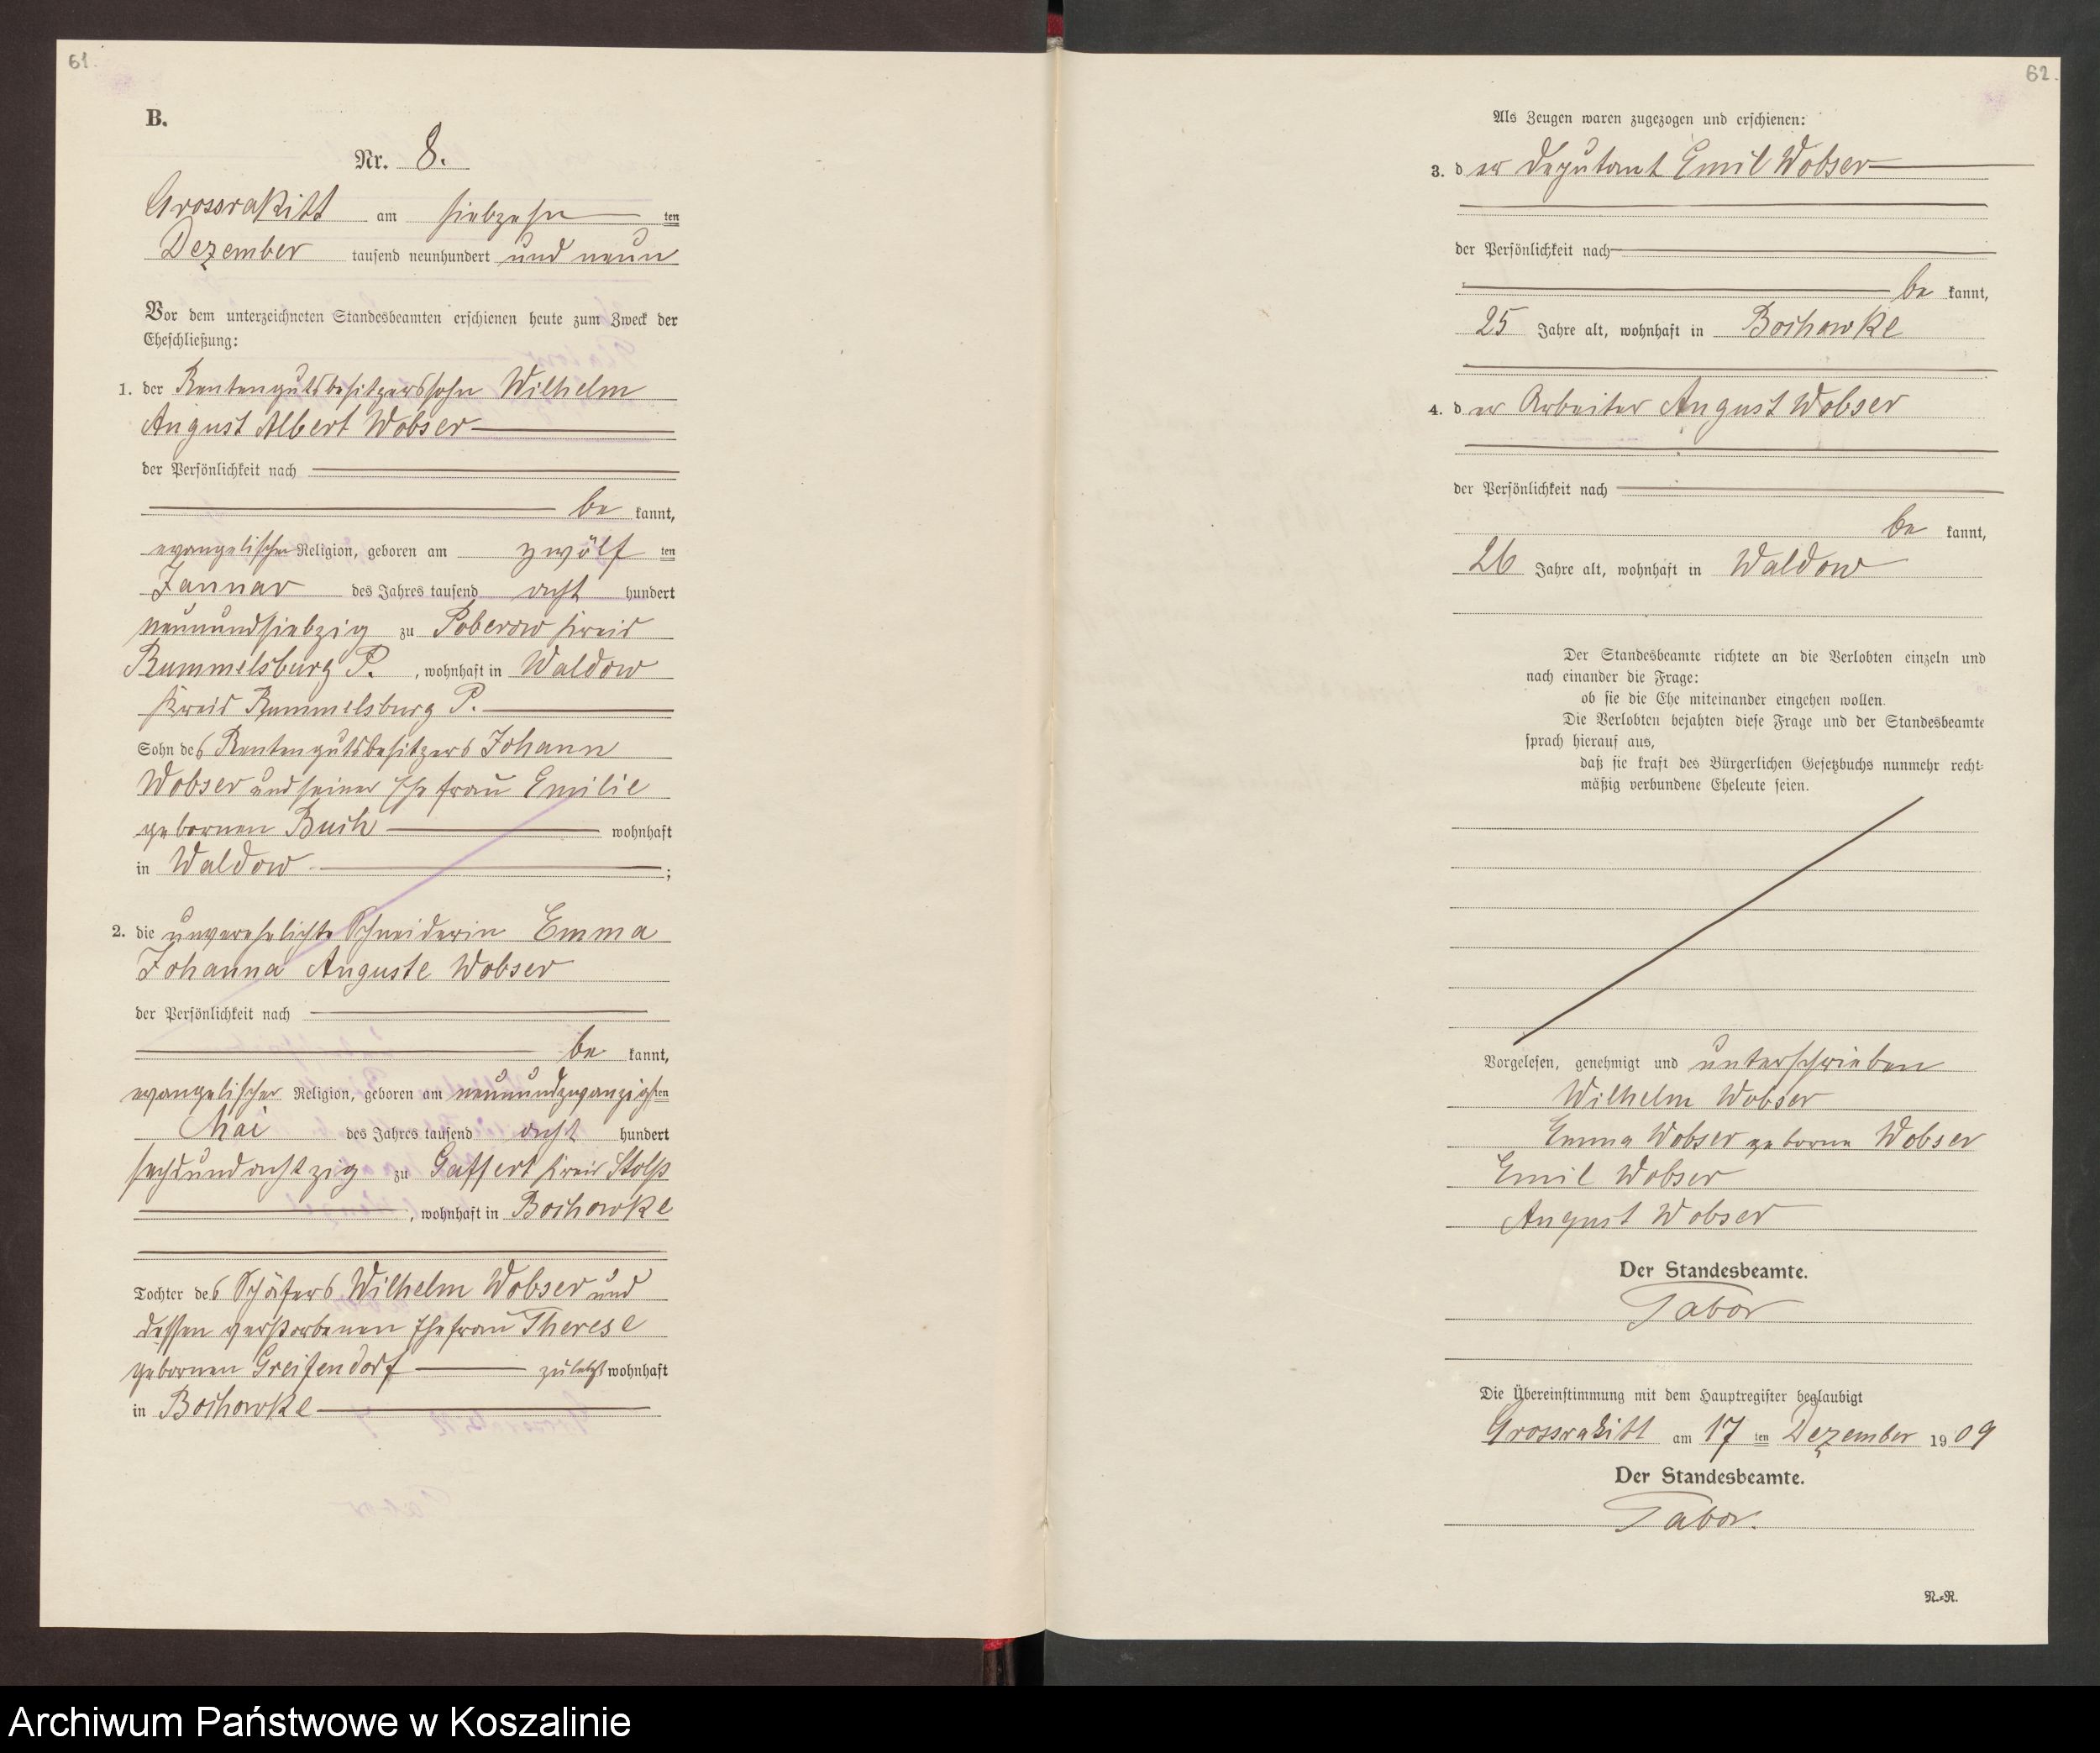 61.
B.
Nr. 8.
Grossrakitt am siebzehnten
Dezember tausend neunhundert und neun
Vor dem unterzeichneten Standesbeamten erschienen heute zum Zweck der
Eheschließung:
1. der Rentengutsbesitzerssohn Wilhelm
August Albert Wobser
der Persönlichkeit nach
be kannt,
evangelischer Religion, geboren am zwölften
Januar des Jahres tausend acht hundert
neunundsiebzig zu Poberow Kreis
Rummelsburg P. , wohnhaft in Waldow
Kreis Rummelsburg P.
Sohn des Rentengutsbesitzers Johann
Wobser und seiner Ehefrau Emilie
gebornen Buch wohnhaft
in Waldow ;
2. die unverehelichte Schneiderin Emma
Johanna Auguste Wobser
der Persönlichkeit nach
be kannt,
evangelischer Religion, geboren am neunundzwanzigsten
Mai des Jahres tausend acht hundert
sechsundachtzig zu Gaffert Kreis Stolp
, wohnhaft in Bochowke
Tochter des Schäfers Wilhelm Wobser und
dessen verstorbenen Ehefrau Therese
gebornen Greifendorf zuletzt wohnhaft
in Bochowke
62.
Als Zeugen waren zugezogen und erschienen:
3. der Deputant Emil Wobser
der Persönlichkeit nach
be kannt,
25 Jahre alt, wohnhaft in Bochowke
4. der Arbeiter August Wobser
der Persönlichkeit nach
be kannt,
26 Jahre alt, wohnhaft in Waldow
Der Standesbeamte richtete an die Verlobten einzeln und
nach einander die Frage:
ob sie die Ehe miteinander eingehen wollen.
Die Verlobten bejahten diese Frage und der Standesbeamte
sprach hierauf aus,
daß sie kraft des Bürgerlichen Gesetzbuchs nunmehr recht-
mäßig verbundene Eheleute seien.
Vorgelesen, genehmigt und unterschrieben
Wilhelm Wobser
Emma Wobser geborne Wobser
Emil Wobser
August Wobser
Der Standesbeamte.
Tabor
Die Übereinstimmung mit dem Hauptregister beglaubigt
Grossrakitt am 17ten Dezember 1909
Der Standesbeamte.
Tabor.
N.-R.
Archiwum Państwowe w Koszalinie